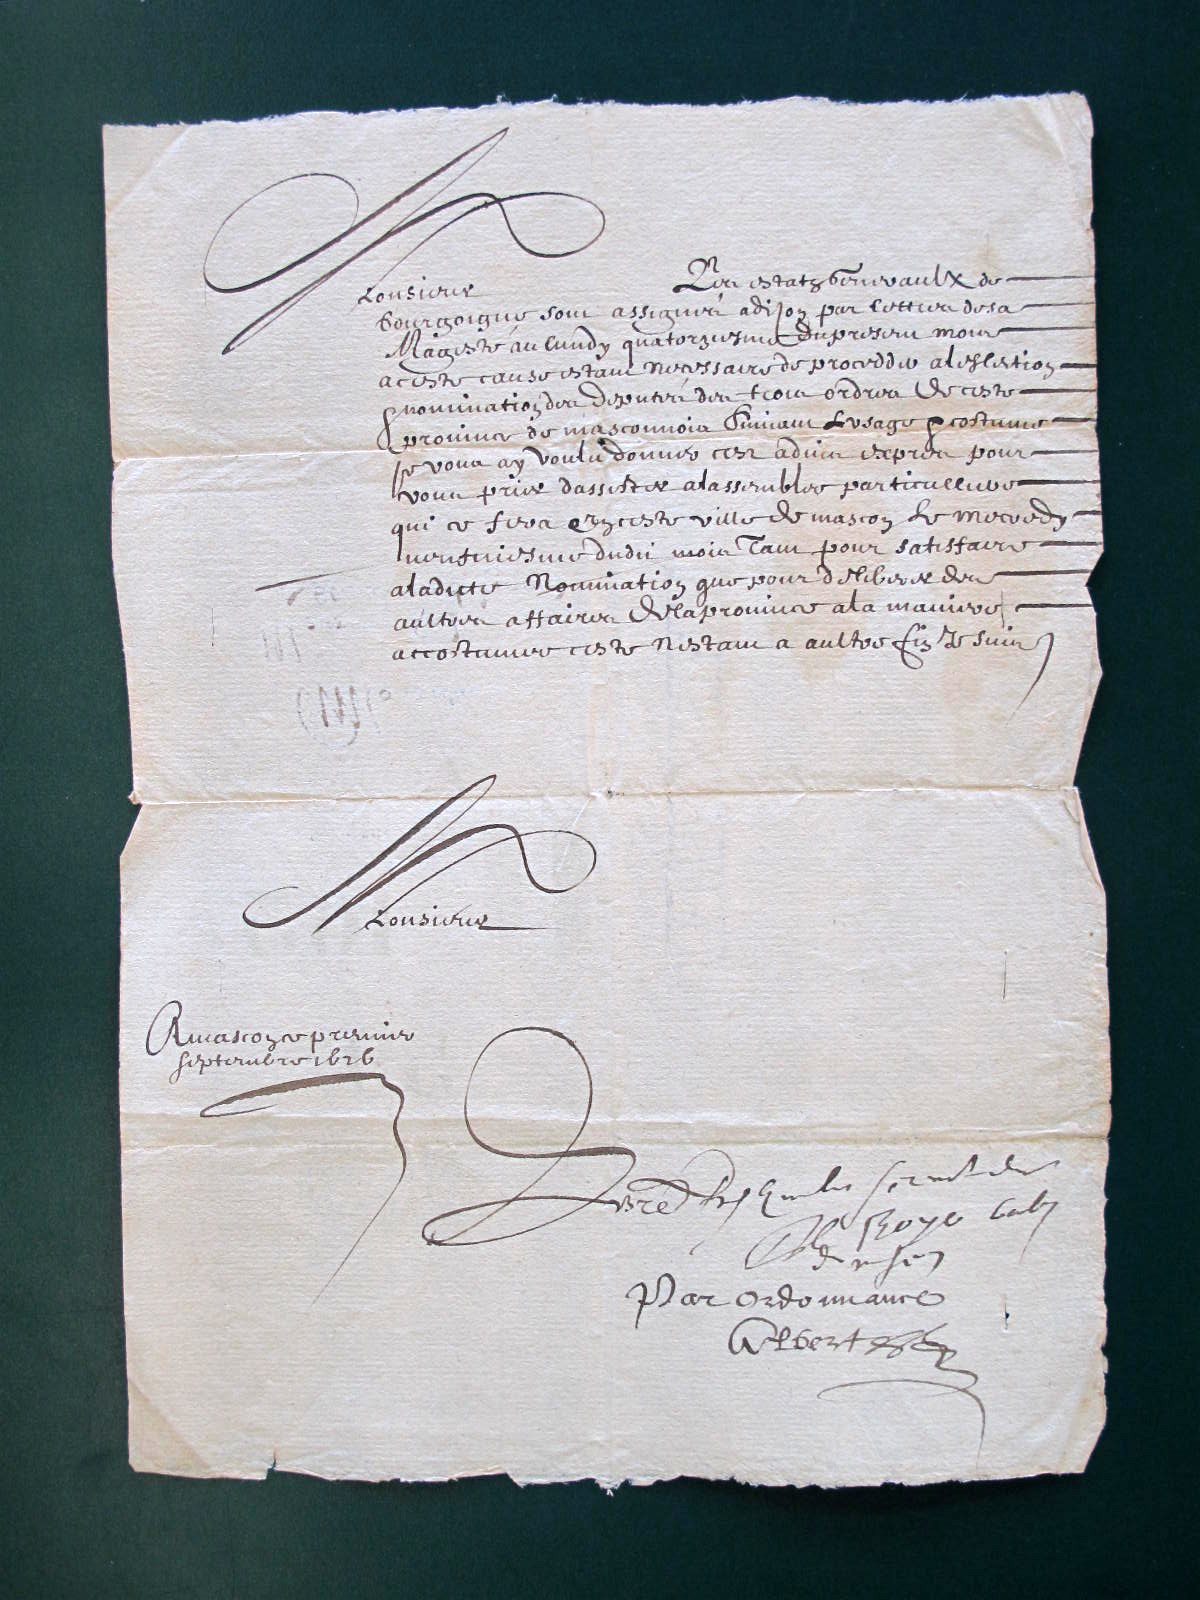 Monsieur Les estatz generaulx de
bourgoigne sont assignés a dijon par lettres de sa
Magesté au lundy quatorziesme du present mois
a ceste cause estant necessaire de procedder a leslection
& nomination des deputés des trois ordres de ceste
province de masconnois suivant lusage & costume
Je vous ay voulu donner cest advis expres pour
vous prier dassister a lassemblee particulliere
qui ce fera en ceste ville de mascon le mercredy
neufviesme dudit mois Tant pour satisfaire
a ladicte Nomination que pour deliberer des
aultres affaires de la province a la maniere
accostumee ceste nestant a aultre fin Je suis
Monsieur
A mascon ce premier
septembre 1626
Vostre
Par ordonnance
Albert